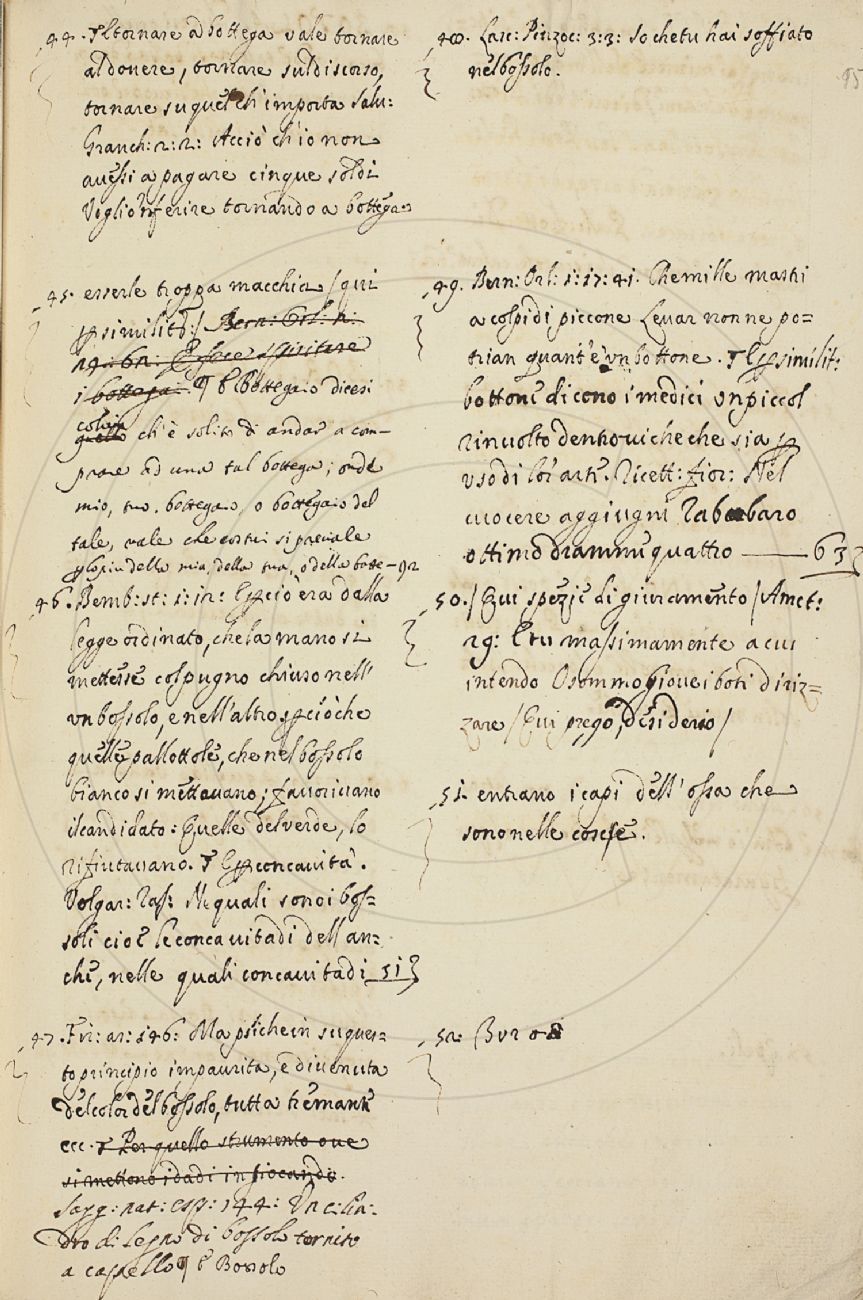 44. ¶ E tornare a bottega vale tornare
al dovere, tornare sul discorso,
tornare su quel ch'importa Salv:
Granch: 2: 2: Acciò ch'io non
avessi a pagare cinque soldi
Voglio inferire tornando a bottega
45. esserle troppa macchia / qui
similit:/ Bern: Orl: 2:
bottega. ¶ E Bottegaio dicesi
colui
quello ch'è solito di andar a com-
prare ad una tal bottega; onde
mio, tuo. bottegaio, o bottegaio del
tale, vale che costui si prevale
della mia, della tua, o della botte- 92
46. Bemb: st: 1: 12: E perciò era dalla
legge ordinato, che la mano si
mettesse col pugno chiuso nell'
un bossolo, e nell'altro acciò che
quelle pallottole, che nel bossolo
bianco si mettavano; favorivano
il candidato: Quelle del verde, lo
rifiutavano. ¶ E p concavità.
Volgar: Ras: Ne quali sono i bos=
soli cioè le concavitadi dell'an=
che, nelle quali concavitadi 51
47. Fir: as: 146: Ma psiche in su ques=
to principio impaurita, e divenuta
del color del bossolo, tutta tremante
ecc. ¶ Per quello strumento ove
si mettono i dadi in giocando.
Sagg: nat: esp: 144: Un cilin-
dro di legno di bossolo tornito
a capello ¶ E Bossolo
48. Lasc: Pinzoc: 3: 3: So che tu hai soffiato
nel bossolo.
85
49. Bern: Orl: 1: 17: 41. Che mille mastri
a colpi di piccone Levar non ne po=
trian quant'è un bottone. ¶ E p similit:
bottone dicono i medici un piccol
rinvolto dentrovi checche sia p
uso di lor arte. Ricett: fior: Nel
cuocere aggiugni Rabarbaro
ottimo dramme quattro — 63
50. / Qui spezie di giuramento / Amet:
29: E tu massimamente a cui
intendo O sommo Giove i boti diriz=
zare / Qui prego, desiderio /
51. entrano i capi dell'ossa che
sono nelle coscie.
52.